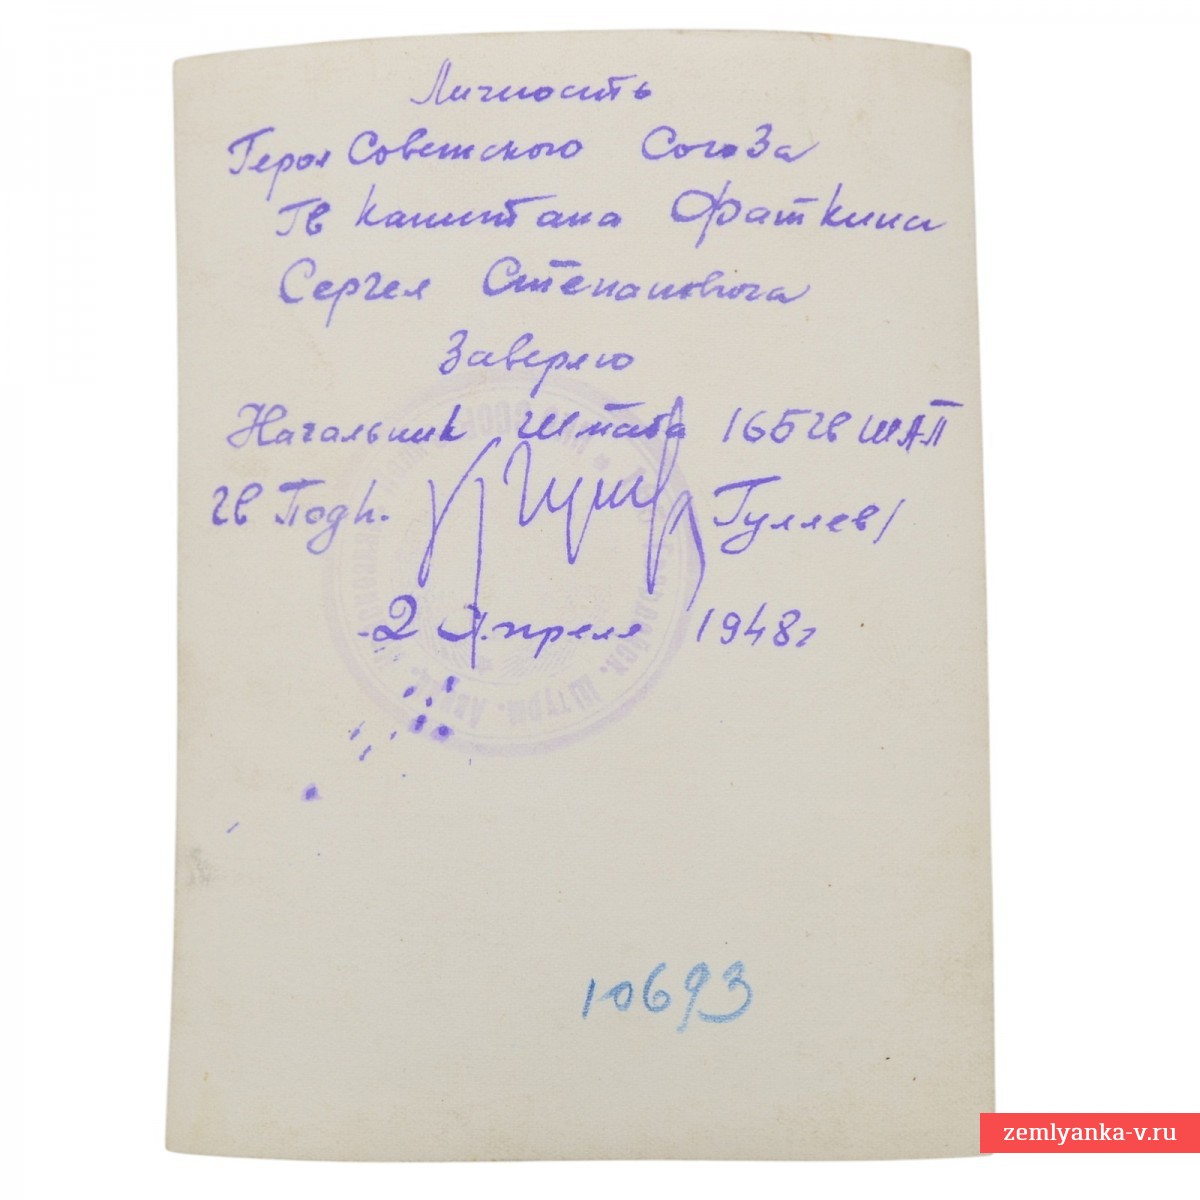 Личность
Героя Советского Союза
Гв Капитана Фраткина
Сергея Степановича
Заверяю
Начальник Штаба 165 гв ШАП
гв Подп. Гуляев/
2 Апреля 1948г
10693
zemlyanka-v.ru